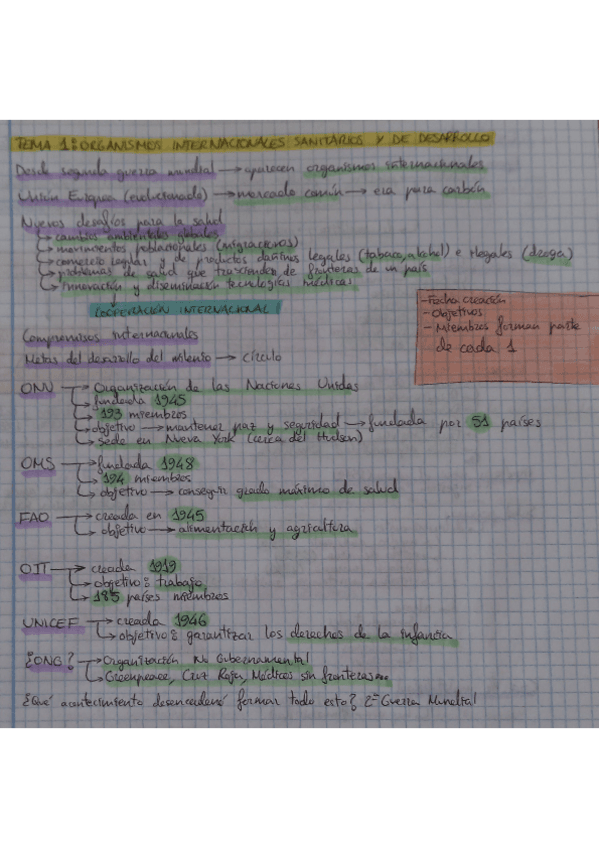 TEMA 1: ORGANISMOS INTERNACIONALES SANITARIOS Y DE DESARROLLO
Desde segunda guerra mundial → aparecen organismos internacionales
Unión Europea (evolucionado) → mercado común → era para carbón
Nuevos desafíos para la salud
↳ cambios ambientales globales
↳ movimientos poblacionales (migraciones)
↳ comercio regular y de productos dañinos legales (tabaco, alcohol) e ilegales (droga)
↳ problemas de salud que trascienden de fronteras de un país
↳ innovación y diseminación tecnologías médicas
↓
COOPERACIÓN INTERNACIONAL
- Fecha creación
- Objetivos
- Miembros forman parte
de cada 1
Compromisos internacionales
Metas del desarrollo del milenio → círculo
ONU → Organización de las Naciones Unidas
↳ fundada 1945
↳ 193 miembros
↳ objetivo → mantener paz y seguridad → fundada por 51 países
↳ sede en Nueva York (cerca del Hudson)
OMS → fundada 1948
↳ 194 miembros
↳ objetivo → conseguir grado máximo de salud
FAO → creada en 1945
↳ objetivo → alimentación y agricultura
OIT → creada 1919
↳ objetivo: trabajo
↳ 185 países miembros
UNICEF → creada 1946
↳ objetivo: garantizar los derechos de la infancia
¿ONG? → Organización No Gubernamental
↳ Greenpeace, Cruz Roja, Médicos sin fronteras...
¿Qué acontecimiento desencadenó formar todo esto? 2ª Guerra Mundial